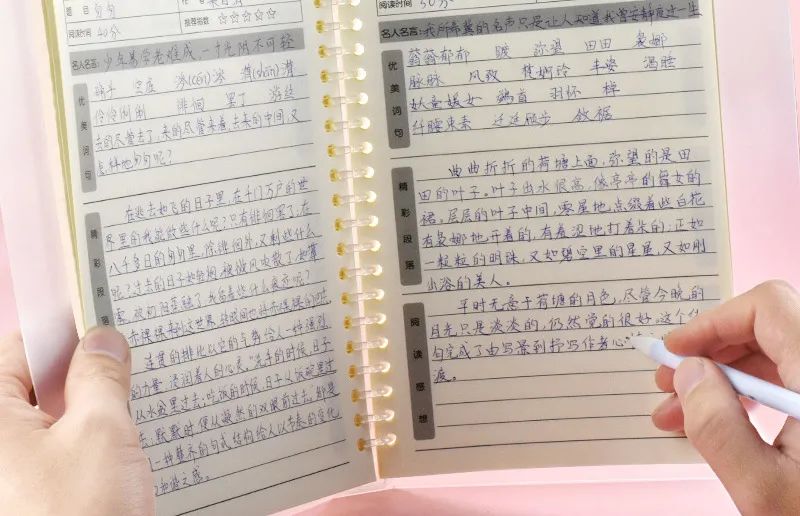 题目 匆匆
阅读时间 40分 推荐指数 ☆☆☆☆☆
名人名言: 少年易学老难成，一寸光阴不可轻
优美词句
涔(cén)涔 潸(shān)潸
伶伶俐俐 徘徊 罢了 游丝
去的尽管去了，来的尽管来着，去来的中间，又
怎样地匆匆呢？
精彩段落
在逃去如飞的日子里，在千门万户的世
界里的我能做些什么呢？只有徘徊罢了，在
八千多日的匆匆里，除徘徊外，又剩些什么
呢？过去的日子如轻烟，被微风吹散了，如薄
雾，被初阳蒸融了，我留着些什么痕迹呢？
连贯的排比以它的气势给人一种强烈
的力量，浸润着人的心灵。“洗手的时候，日子
从水盆里过去；吃饭的时候，日子从饭碗里过
去；默默时，便从凝然的双眼前过去。”都是
一种整齐的句式结构给人以节奏的变化
和谐之感。
阅读时间 50分
名人名言: 我所希冀的名声只是让人知道我曾安静度过一生
优美词句
蓊蓊郁郁 踱 弥望 田田 袅娜
脉脉 风致 丰姿
妖童媛女 鹢首 羽杯 棹
纤腰束素 迁延顾步 敛裾
精彩段落
曲曲折折的荷塘上面，弥望的是田
田的叶子。叶子出水很高，像亭亭的舞女的
裙。层层的叶子中间，零星地点缀着些白花，
有袅娜地开着的，有羞涩地打着朵的；正如
一粒粒的明珠，又如碧空里的星星，又如刚
出浴的美人。
阅读感想
平时无意于荷塘的月色，尽管今晚的
月光只是淡淡的，仍然觉的很好，这个
句完成了由写景到抒写作者心
渡。